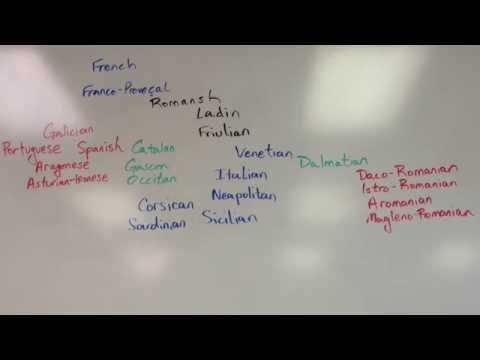 French
Franco-Proveçal
Romansh
Ladin
Galician
Friulian
Portuguese Spanish Catalan
Venetian
Dalmatian
Aragonese
Gascon
Italian
Daco-Romanian
Asturian-Leonese
Occitan
Istro-Romanian
Neapolitan
Aromanian
Corsican
Megleno-Romanian
Sardinian
Sicilian